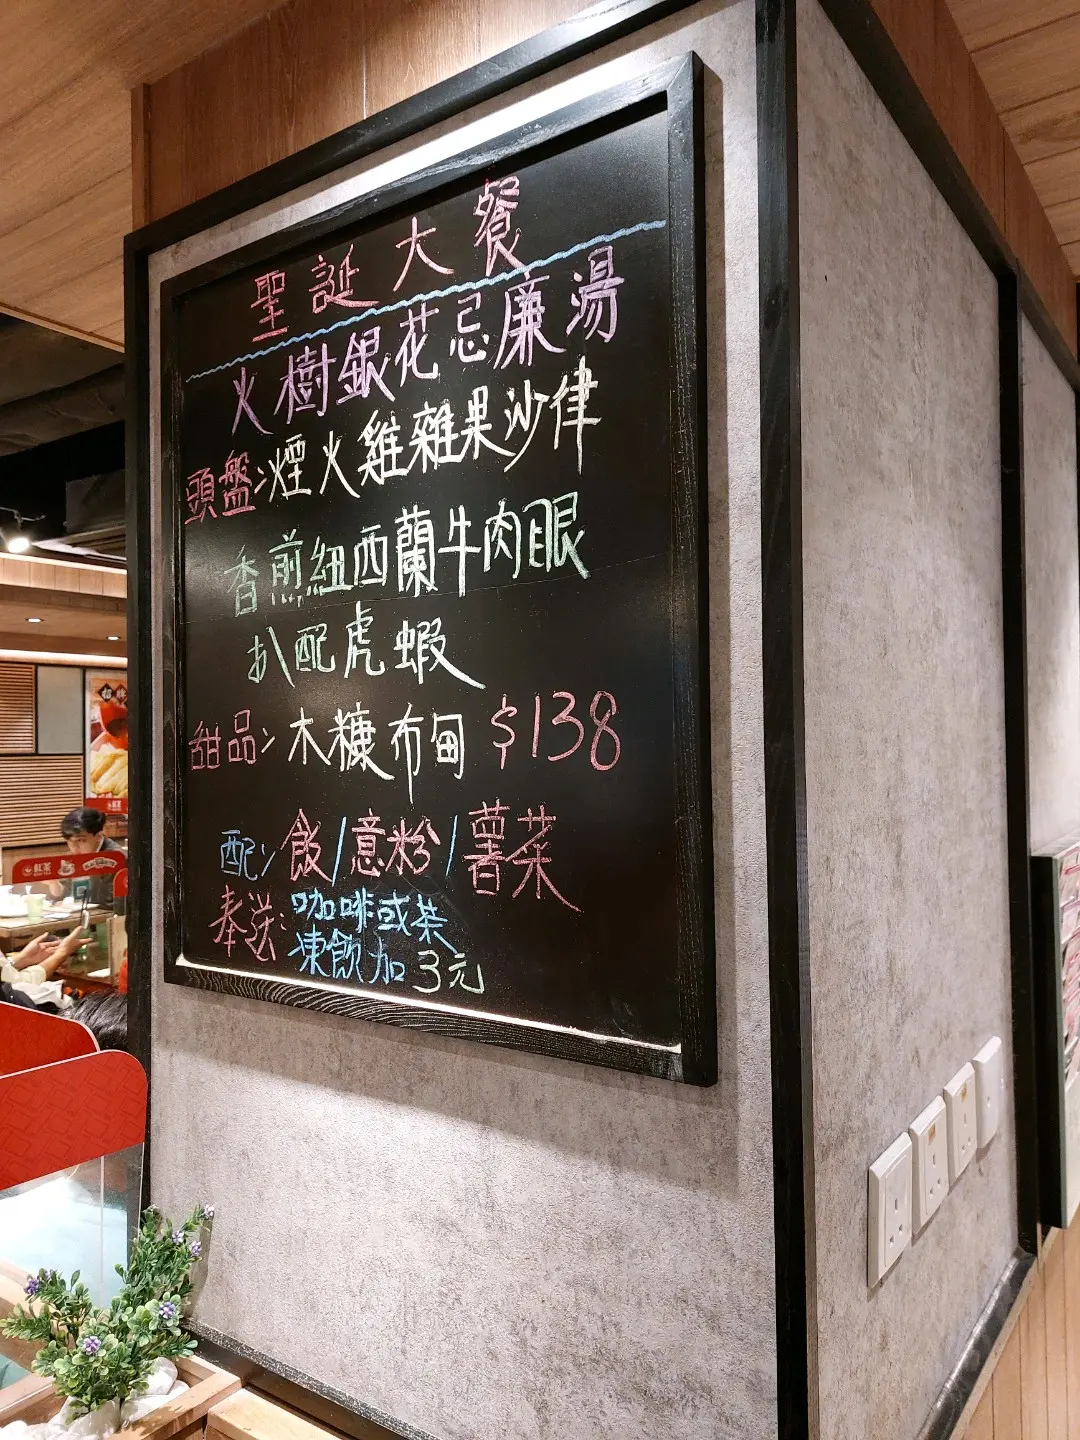 聖誕大餐
火樹銀花忌廉湯
頭盤:煙火雞雜果沙律
香煎紐西蘭牛肉眼
扒配虎蝦
甜品:木糠布甸 $138
配:飯/意粉/薯菜
奉送:咖啡或茶
凍飲加3元
招牌
紅茶